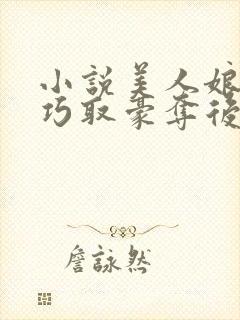 小說美人娘
巧取豪奪後
詹詠然